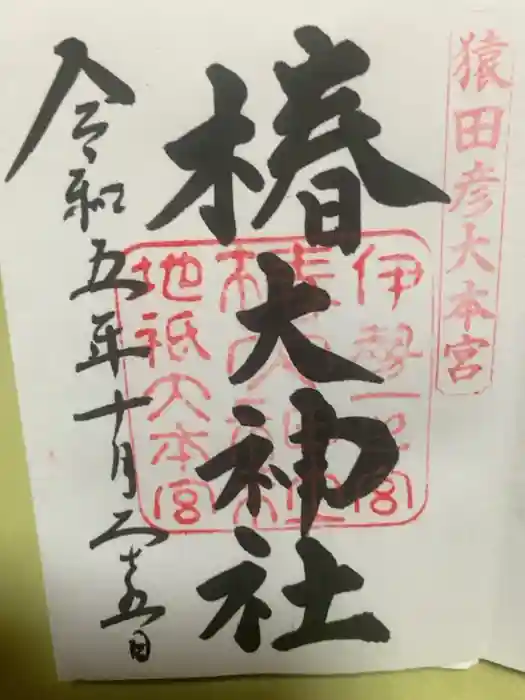 猿田彦大本宮
椿大神社
伊勢一之宮
地祇大本宮
令和五年十月二十五日